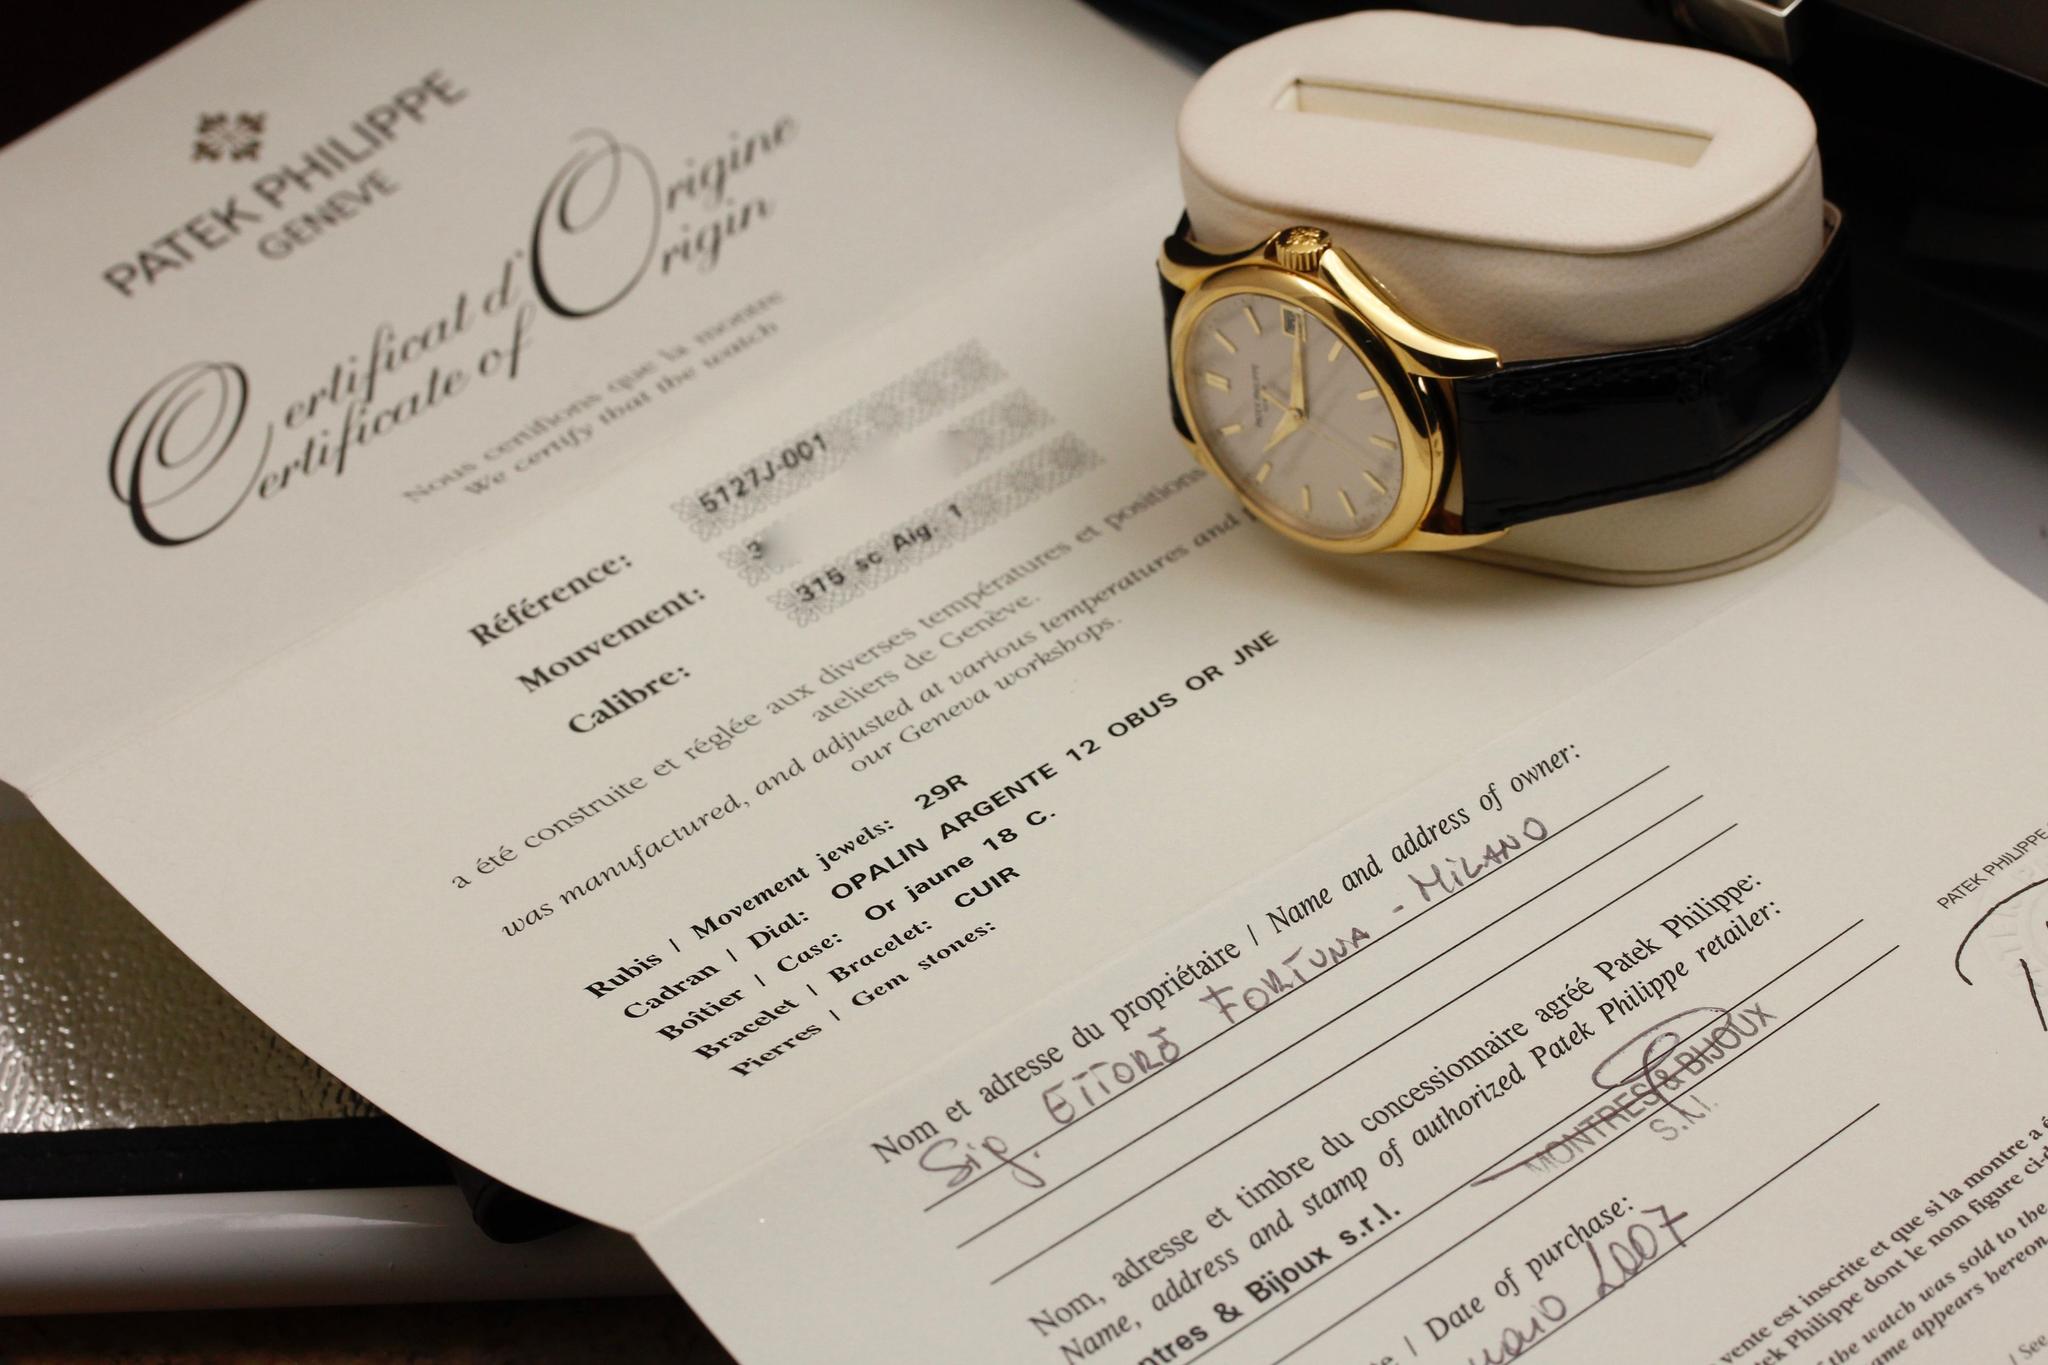 PATEK PHILIPPE
GENEVE
Certificat d'Origine
Certificate of Origin
Nous certifions que la montre
We certify that the watch
Référence: 5127J-001
Mouvement: 3
Calibre: 315 sc Aig. 1
a été construite et réglée aux diverses températures et positions
ateliers de Genève.
was manufactured, and adjusted at various temperatures and
our Geneva workshops.
Rubis | Movement jewels: 29R
Cadran | Dial: OPALIN ARGENTE 12 OBUS OR JNE
Boîtier | Case: Or jaune 18 C.
Bracelet | Bracelet: CUIR
Pierres | Gem stones:
Nom et adresse du propriétaire / Name and address of owner:
Sig. ETTORE FORTUNA - MILANO
Nom, adresse et timbre du concessionnaire agréé Patek Philippe:
Name, address and stamp of authorized Patek Philippe retailer:
ntres & Bijoux s.r.l.
MONTRES & BIJOUX
/ Date of purchase:
2007
PATEK PHILIPPE
vente est inscrite et que si la montre a é
Philippe dont le nom figure ci-d
the watch was sold to the
me appears hereon.
/ See
PATEK PHILIPPE